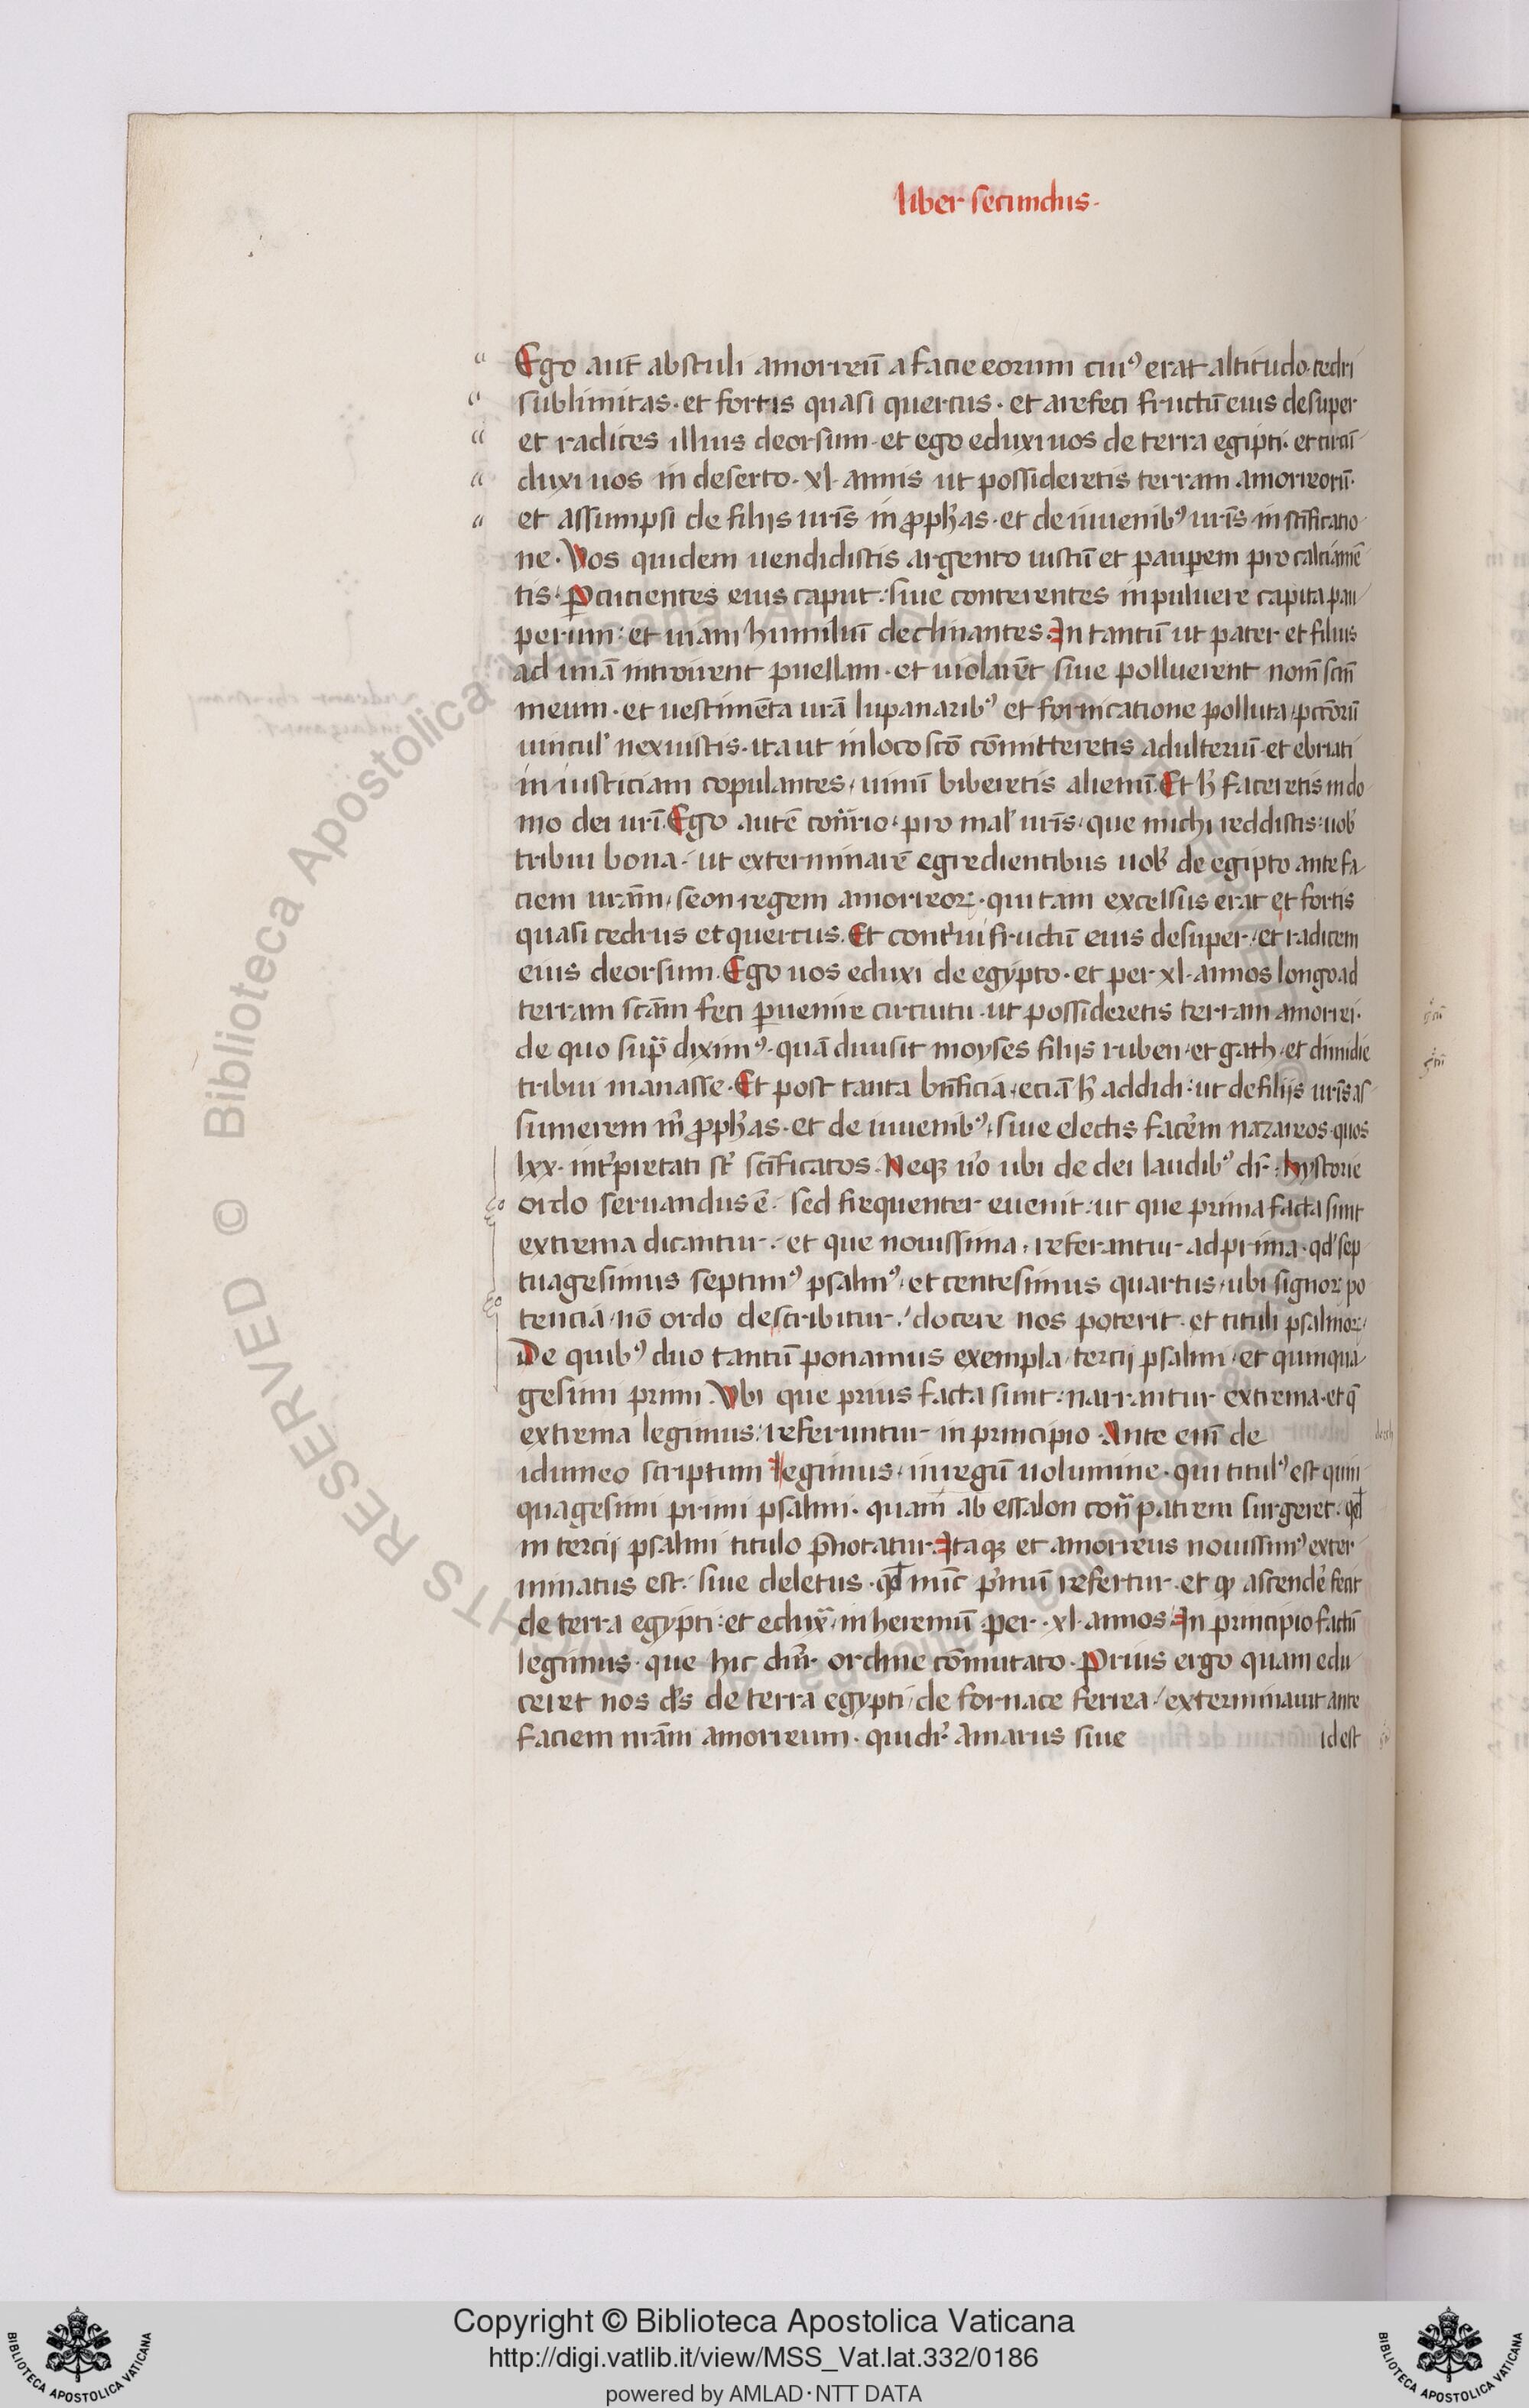 liber secundus·
Ego aut̄ abstuli amorreū a facie eorum cuiꝰ erat altitudo cedri
sublimitas· et fortis quasi quercus· et arefeci fructū eius desuper
et radices illius deorsum· et ego eduxi uos de terra egipti· et circū
duxi uos in deserto· xl· annis ut possideretis terram amorreorū·
et assumpsi de filijs uris̄ in ꝓph̄as· et de iuuenibꝰ uris̄ in sc̄ificatio
ne· Vos quidem uendidistis argento iustū et pauꝑem pro calciamē
tis· Ꝑcucientes eius caput· siue conterentes in puluere capita pau
perum· et uiam humiliū declinantes· In tantū ut pater et filius
ad unā introirent puellam· et uiolarēt siue polluerent nom̄ scm̄
meum· et uestimēta urā lupanaribꝰ et fornicatione polluta· pccōrū
uincul' nexuistis· ita ut in loco scō cōmitteretis adulteriū· et ebriati
in iusticiam copulantes, uinū biberetis alienū· Et h̄ faceretis in do
mo dei urī· Ego autē con̄rio· pro mal' uris̄· que michi reddistis: uob'
tribui bona· ut exterminarē egredientibus uob' de egipto ante fa
ciem uram̄, seon regem amorreoꝝ· qui tam excelsus erat et fortis
quasi cedrus et quercus· Et cont'ui fructū eius desuper, et radicem
eius deorsum· Ego uos eduxi de egypto· et per xl· annos longo ad
terram scām feci ꝑuenire circuitu· ut possideretis terram amorrei·
de quo sup̄ diximꝰ· quā diuisit moyses filijs ruben· et gath· et dimidie
tribui manasse· Et post tanta bn̄ficia· eciā h̄ addidi: ut de filijs uris̄ as
sumerem m̄ ꝓph̄as· et de iuuenibꝰ, siue electis facēm nazareos· quos
lxx· int'pretati st̄ sc̄ificatos· Neqꝫ u'o ubi de dei laudibꝰ dr̄· hystorie
ordo seruandus ē· sed frequenter euenit: ut que prima facta sunt
extrema dicantur· et que nouissima, referantur ad prima· qd' sep
tuagesimus septimꝰ psalmꝰ, et centesimus quartus, ubi signoꝝ po
tencia, nō ordo describitur· docere nos poterit· et tituli psalmoꝝ·
De quibꝰ duo tantū ponamus exempla, tercij psalmi, et quinqua
gesimi primi· Vbi que prius facta sunt: narrantur extrema· et q̄
extrema legimus: referuntur in principio· Ante enī de
idumeo scriptum legimus· in regū uolumine· qui titulꝰ est quin
quagesimi primi psalmi· quam ab essalon con̄ patrem surgeret· qd̄
in tercij psalmi titulo p̄notatur· Itaqꝫ et amorreus nouissimꝰ exter
minatus est· siue deletus· qd̄ nunc p'mū refertur· et ꝙ ascende' fecit
de terra egypti: et edux̄, in heremū per· xl· annos· In principio factū
legimus· que hic dnr̄ ordine cōmutato· Prius ergo quam edu
ceret nos ds̄ de terra egypti, de fornace ferrea, exterminauit ante
faciem nram̄ amorreum· qui dr̄ Amarus siue
idest